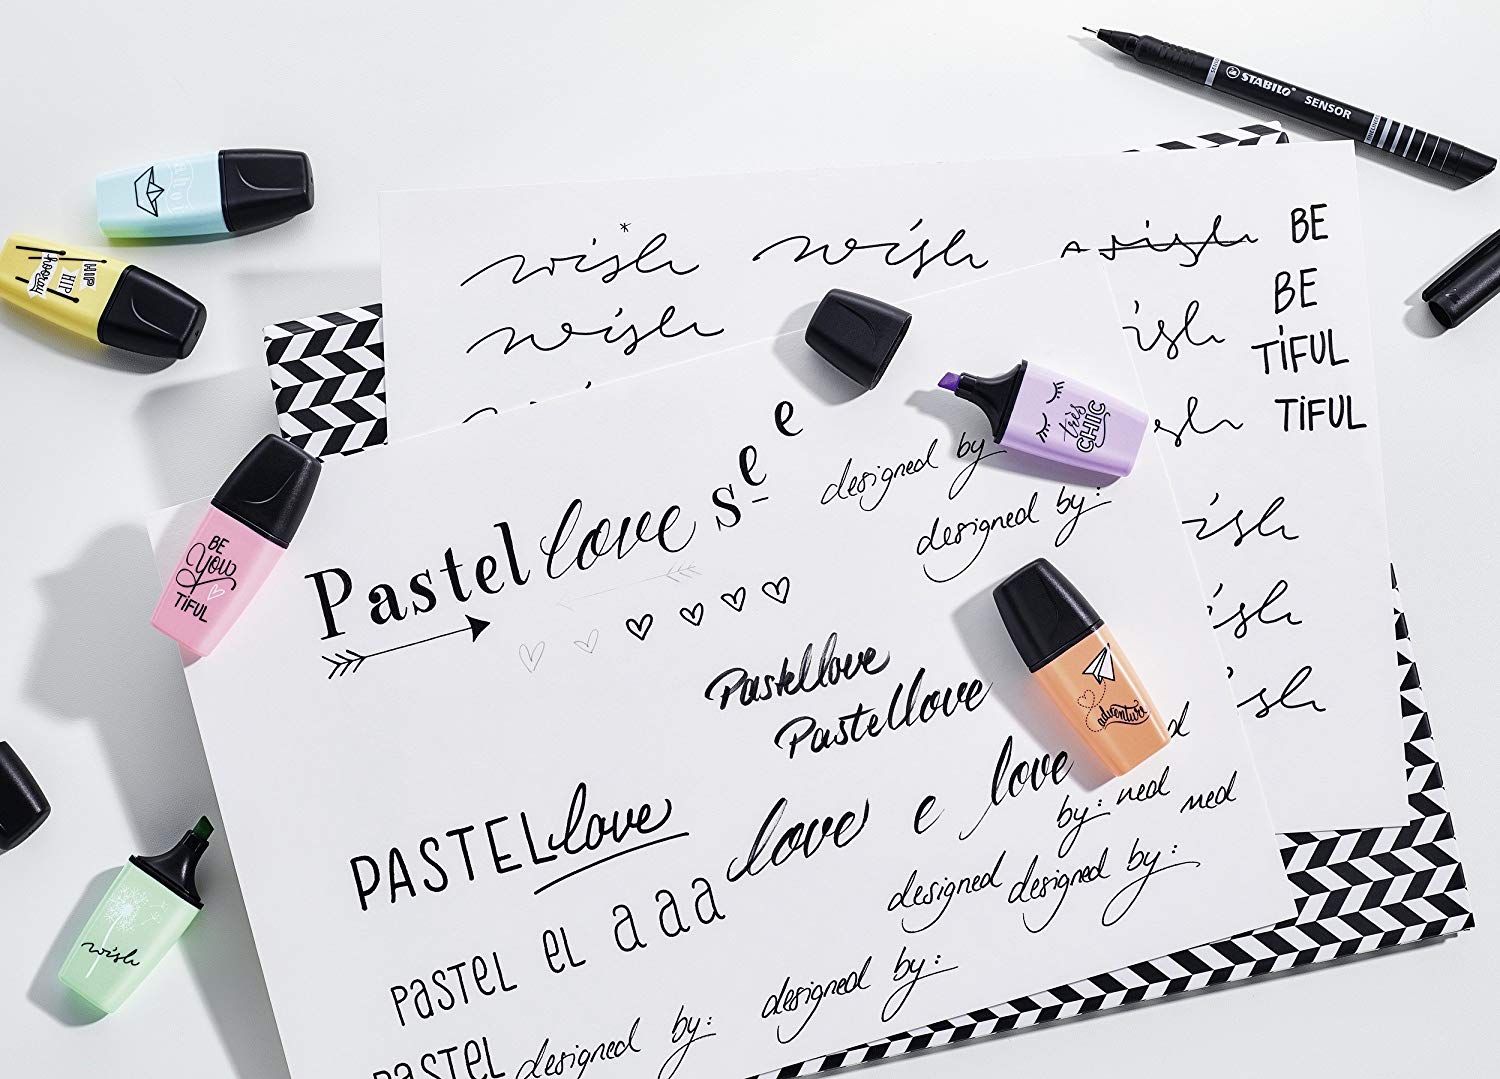 STABILO SENSOR
ahoi
HIP
HIP
hooray
wish wish wish
wish
BE
BE
TiFUL
TiFUL
wish
wish
wish
wish
wish
très
CHIC
e
Pastel love see
designed by
designed by:
BE
YOU
TiFUL
Pastellove
Pastellove
adventure
PASTELlove
love e love
by: ned
ned
designed designed by:
PaSTEL EL a a a
designed by:
PaSTEL designed by:
wish